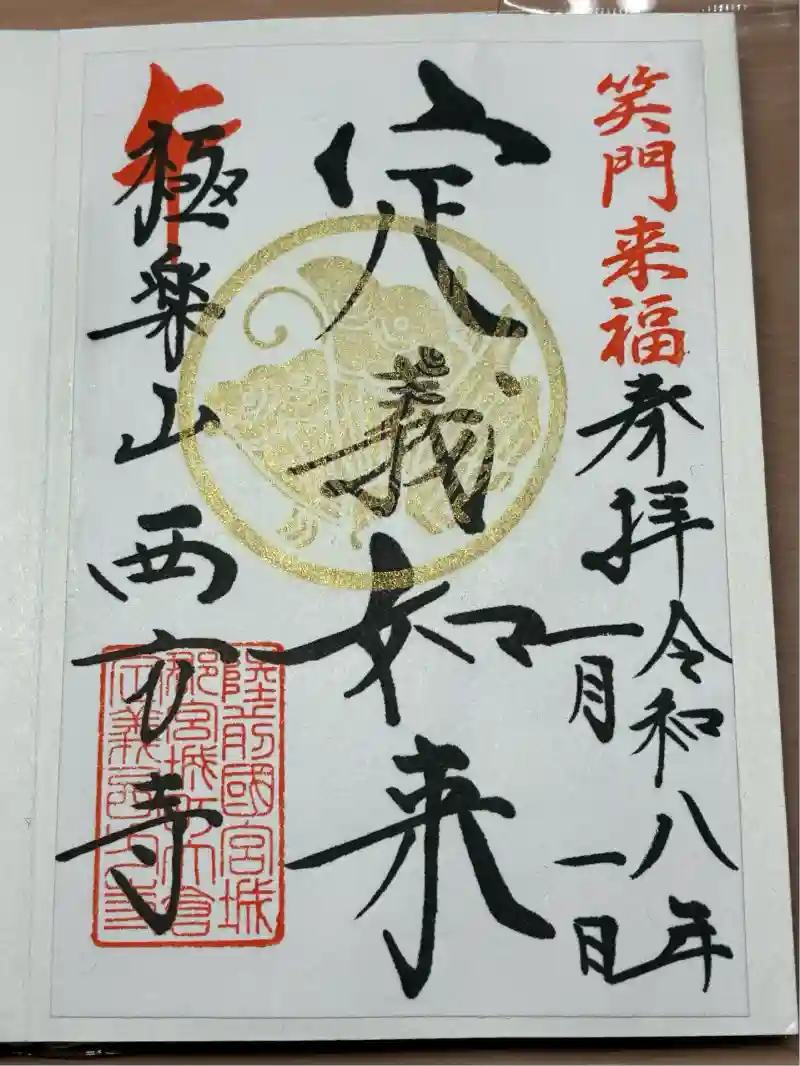 笑門来福
奉拝
令和八年
一月一日
定義如来
午
極楽山西方寺
陸前國宮城
郡宮城町大倉
定義西方寺